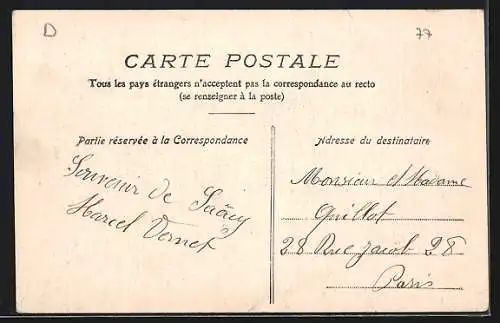 D
77
CARTE POSTALE
Tous les pays étrangers n'acceptent pas la correspondance au recto
(se renseigner à la poste)
Partie réservée à la Correspondance
Souvenir de Saâcy
Marcel Vernet
Adresse du destinataire
Monsieur et Madame
Quillot
28 Rue Jacob 28
Paris